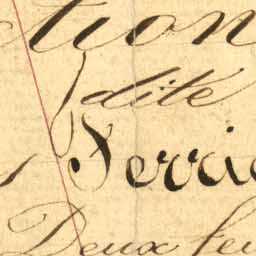 tion
dite
Serri
Deux feu